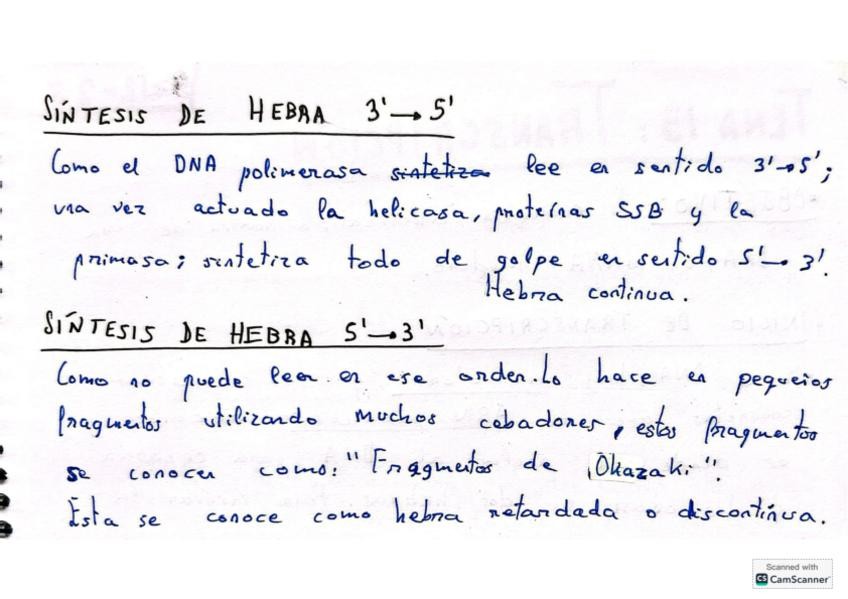 SÍNTESIS DE HEBRA 3' → 5'
Como el DNA polimerasa sintetiza lee en sentido 3'→5';
una vez actuado la helicasa, proteínas SSB y la
primasa; sintetiza todo de golpe en sentido 5'→ 3'.
Hebra continua.
SÍNTESIS DE HEBRA 5' → 3'
Como no puede leer en ese orden lo hace en pequeños
fragmentos utilizando muchos cebadores, estos fragmentos
se conocen como: "Fragmentos de Okazaki".
Esta se conoce como hebra retardada o discontinua.
Scanned with
CS CamScanner